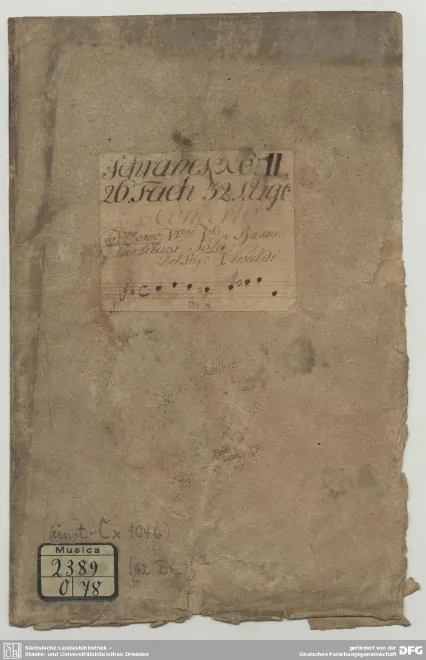 Schranck No: II.
26. Fach 32. Lage
Concerto
Partitura Sola
Del Sigr: Vivaldi
(einst. Cx 1046)
Musica
2389
O/78
Sächsische Landesbibliothek -
Staats- und Universitätsbibliothek Dresden
gefördert von der
Deutschen Forschungsgemeinschaft
DFG